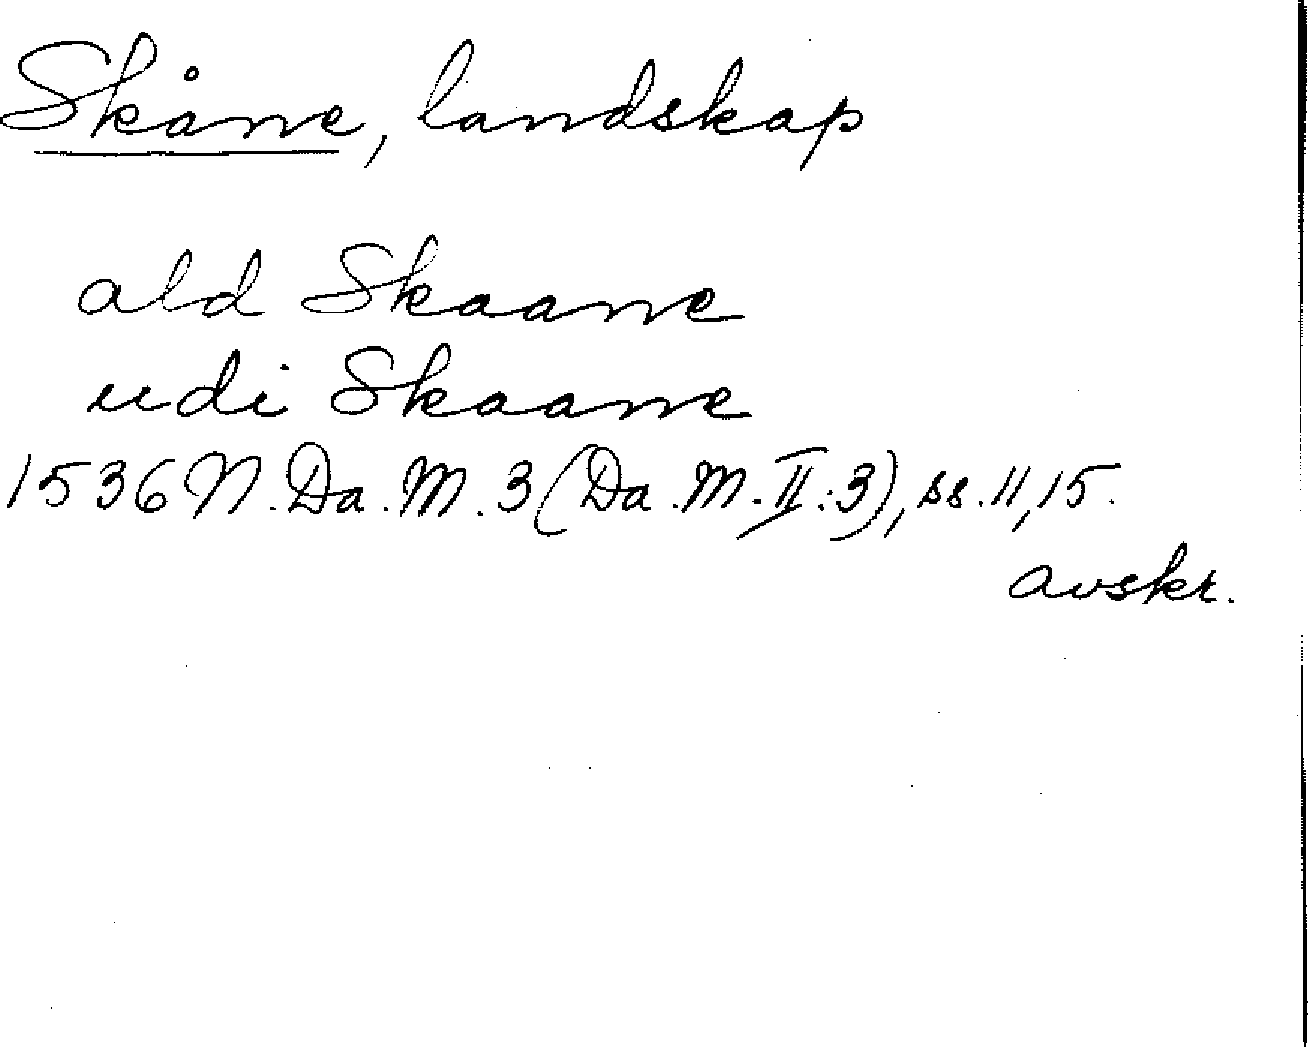 Skåne, landskap
ald Skaane
udi Skaane
1536 N. Da. M. 3 (Da. M. II:3), ss. 11, 15.
avskr.